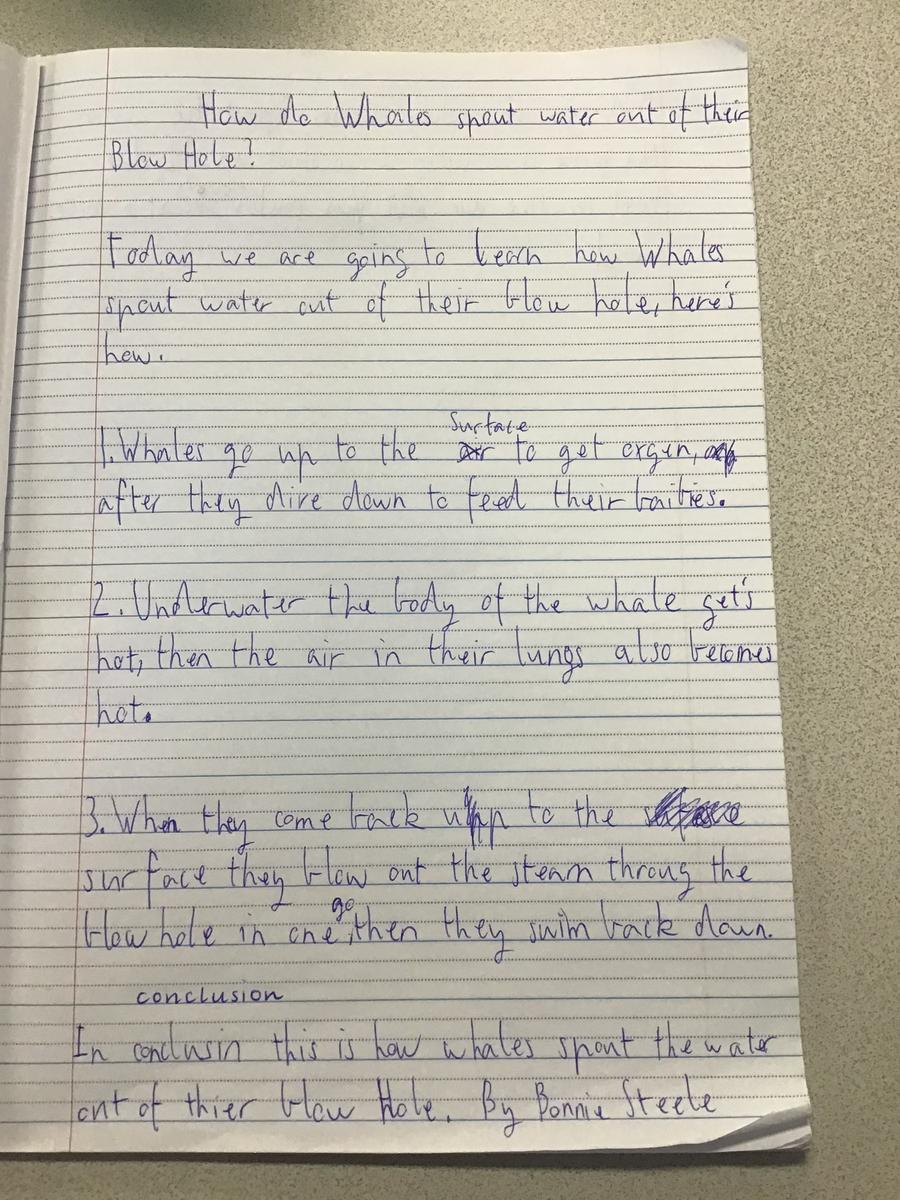 How do Whales spout water out of their
Blow Hole?
Today we are going to learn how Whales
spout water out of their blow hole, here's
how.
Surface
1. Whales go up to the air to get orgen,
after they dive down to feed their baibies.
2. Underwater the body of the whale get's
hot, then the air in their lungs also becomes
hot.
3. When they come back up to the
surface they blow out the steam throug the
go
blow hole in one, then they swim back down.
conclusion
In conclusin this is how whales spout the water
out of thier blow Hole. By Bonnie Steele